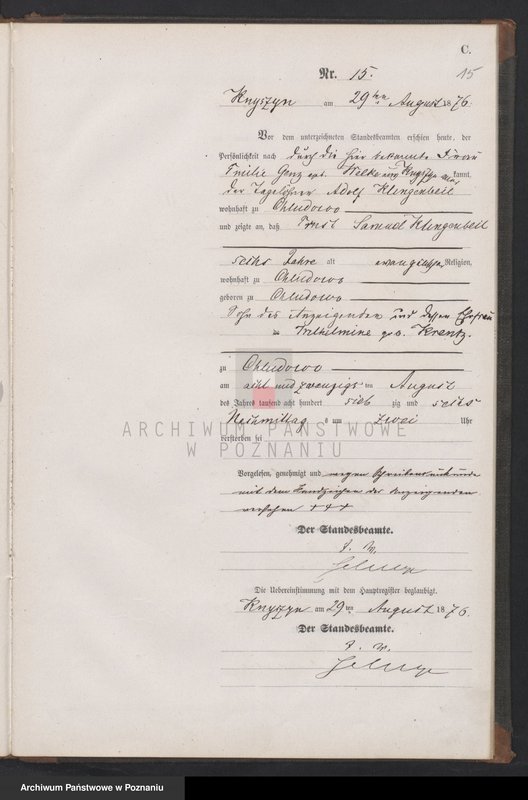 C.
Nr. 15.
15
Knyszyn am 29ten August 1876.
Vor dem unterzeichneten Standesbeamten erschien heute, der
Persönlichkeit nach durch die hier bekannte Frau
geb. Wilke aus Knyszyn kannt,
der Tagelöhner Adolf Klingenbeil
wohnhaft zu Chludowo
und zeigte an, daß Ernst Samuel Klingenbeil
sechs Jahre alt evangelischer Religion,
wohnhaft zu Chludowo
geboren zu Chludowo
Sohn des Anzeigenden und dessen Ehefrau
Wilhelmine geb. Krentz.
zu Chludowo
am acht und zwanzigsten August
des Jahres tausend acht hundert sieb zig und sechs
Nachmittags um zwei Uhr
verstorben sei
Vorgelesen, genehmigt und wegen Schreibensunkunde
mit dem Handzeichen des Anzeigenden
versehen +++
Der Standesbeamte.
J. V.
Die Uebereinstimmung mit dem Hauptregister beglaubigt.
Knyszyn am 29ten August 1876.
Der Standesbeamte.
J. V.
ARCHIWUM PAŃSTWOWE
W POZNANIU
Archiwum Państwowe w Poznaniu